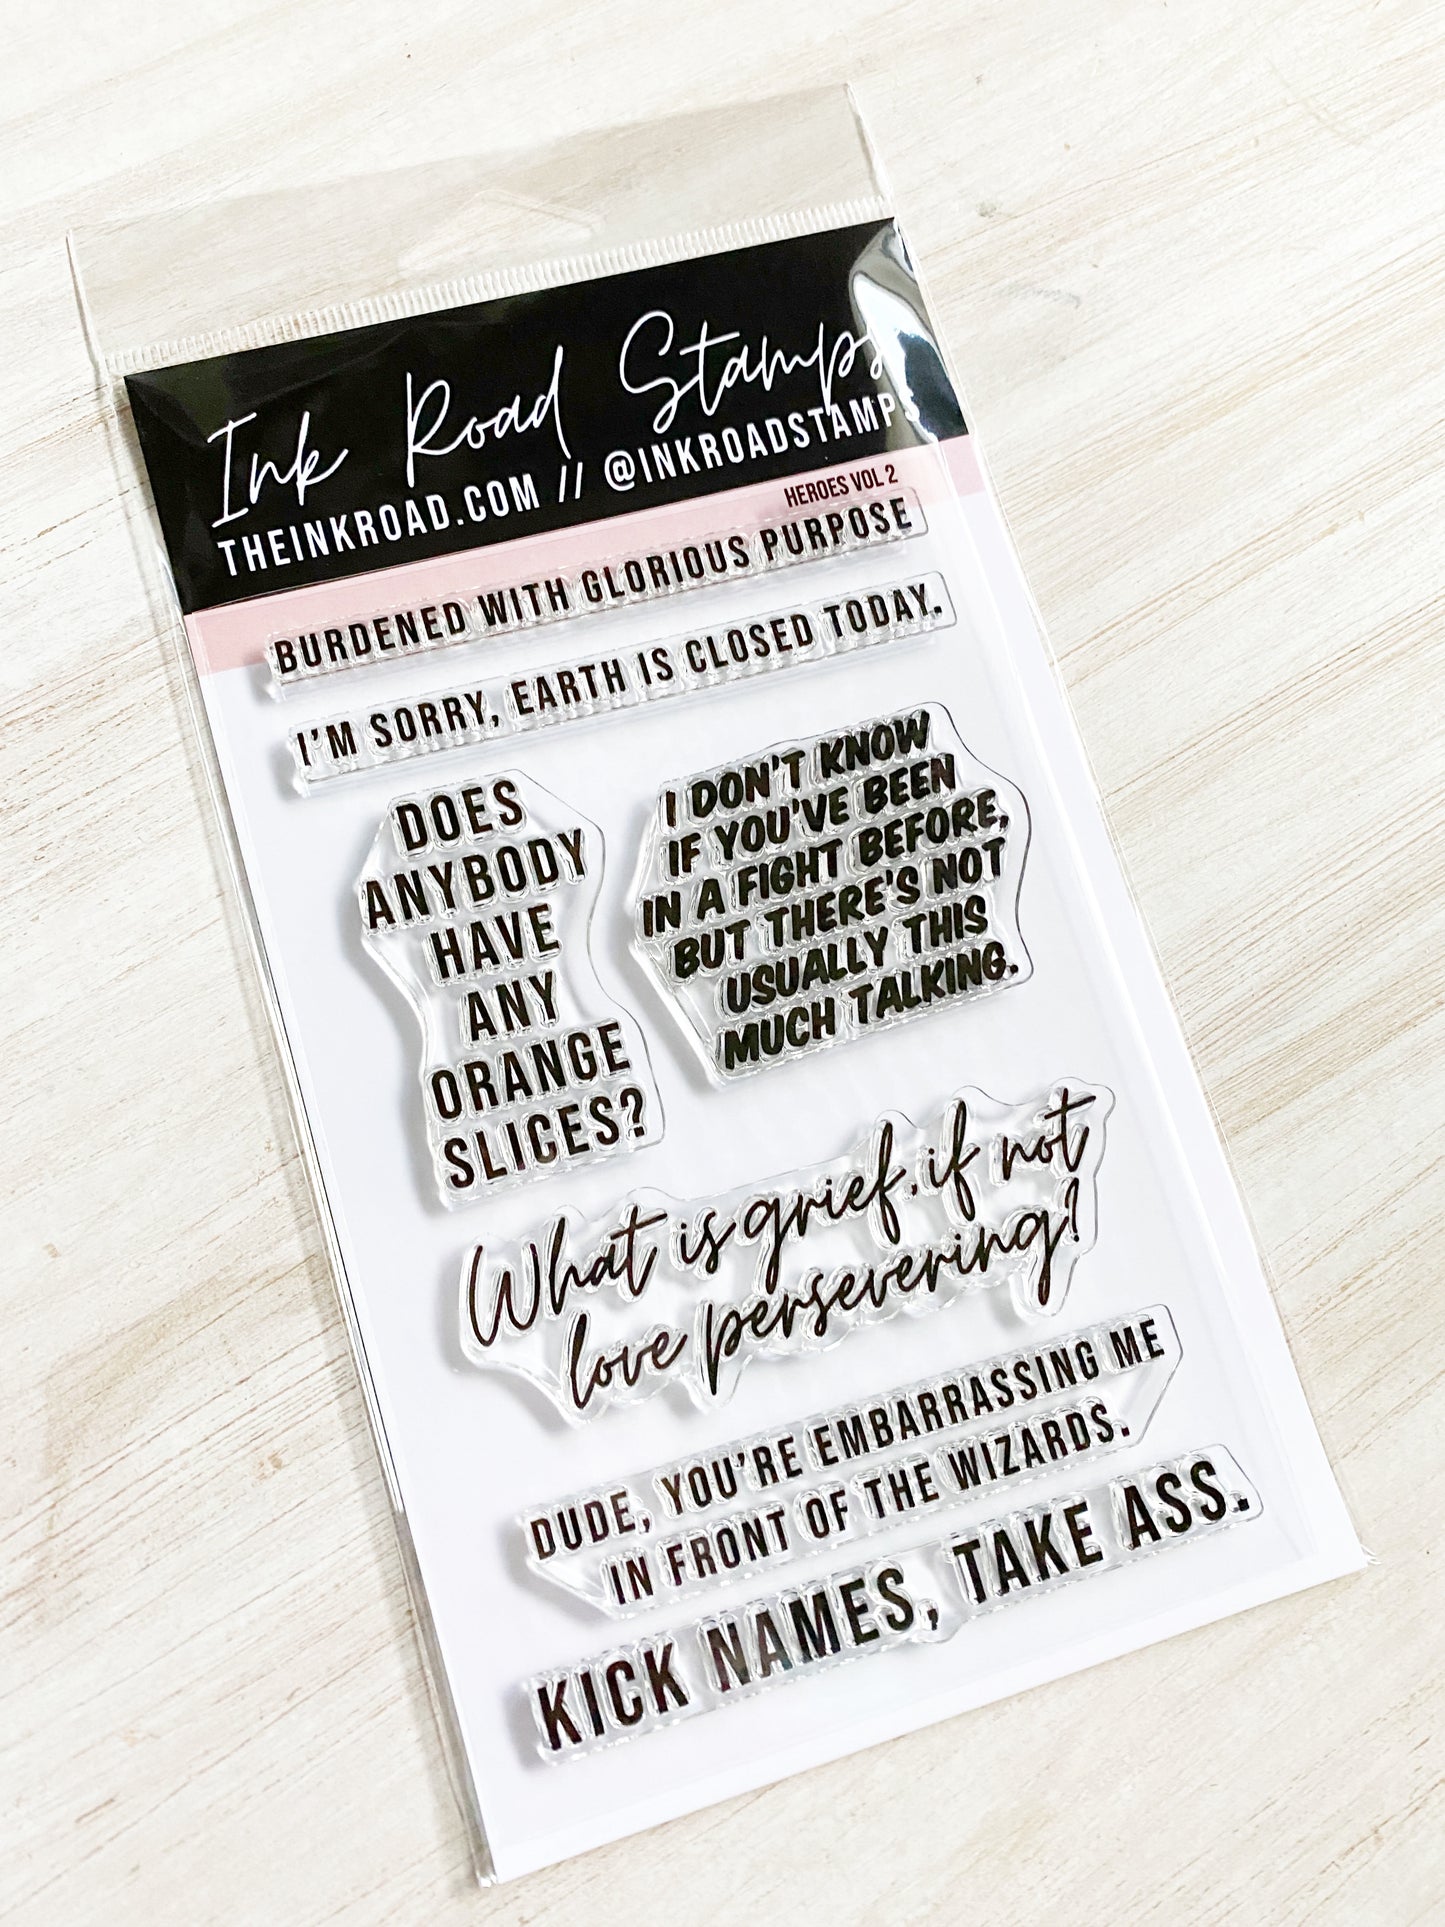 Ink Road Stamps
THEINKROAD.COM // @INKROADSTAMPS
HEROES VOL 2
BURDENED WITH GLORIOUS PURPOSE
I'M SORRY, EARTH IS CLOSED TODAY.
DOES
ANYBODY
HAVE
ANY
ORANGE
SLICES?
I DON'T KNOW
IF YOU'VE BEEN
IN A FIGHT BEFORE,
BUT THERE'S NOT
USUALLY THIS
MUCH TALKING.
What is grief, if not
love persevering?
DUDE, YOU'RE EMBARRASSING ME
IN FRONT OF THE WIZARDS.
KICK NAMES, TAKE ASS.